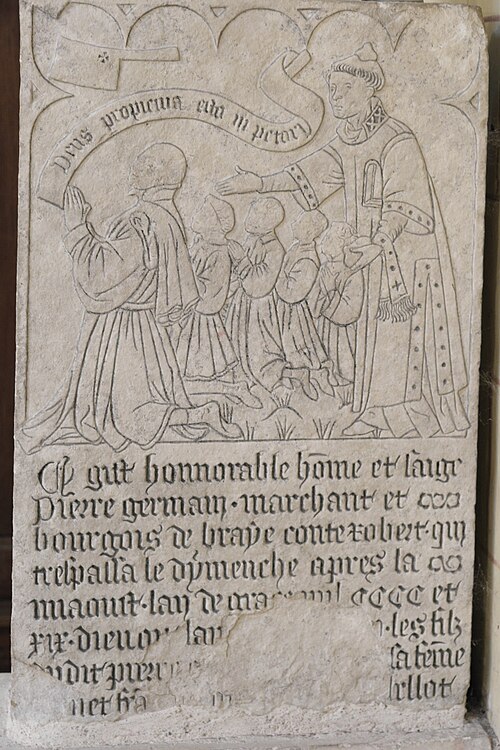 Deus propicius esto m petori
Cy gist honnorable hōme et saige
Pierre germain · marchant et
bourgois de braye conte robert · qui
trespassa le dymenche apres la
miaoust · lan de grace mil CCCC et
xix · dieu lan · les filz
dudit pierre sa fēme